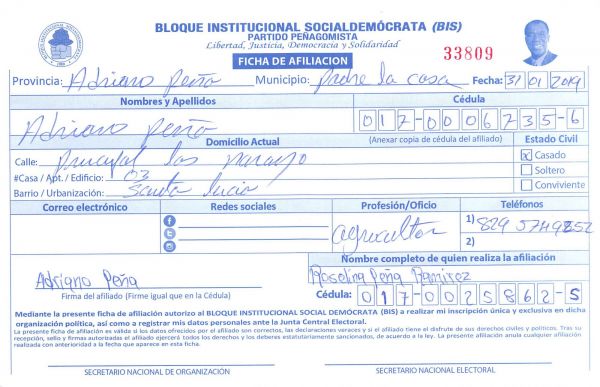 BLOQUE INSTITUCIONAL SOCIALDEMÓCRATA (BIS)
PARTIDO PEÑAGOMISTA
Libertad, Justicia, Democracia y Solidaridad
FICHA DE AFILIACION
33809
Provincia: Adriano Peña Municipio: Padre las casa Fecha: 31/01/2019
Nombres y Apellidos Cédula
Adriano Peña 017-0006735-6
Domicilio Actual (Anexar copia de cédula del afiliado) Estado Civil
Calle: Principal los naranjo x Casado
#Casa / Apt. / Edificio: 03 Soltero
Barrio / Urbanización: Santa Lucia Conviviente
Correo electrónico Redes sociales Profesión/Oficio Teléfonos
agricultor 1) 829 5749252
2)
Nombre completo de quien realiza la afiliación
Adriano Peña Roselina Peña Ramirez
Firma del afiliado (Firme igual que en la Cédula) Cédula: 017-0025862-5
Mediante la presente ficha de afiliación autorizo al BLOQUE INSTITUCIONAL SOCIAL DEMÓCRATA (BIS) a realizar mi inscripción única y exclusiva en dicha
organización política, así como a registrar mis datos personales ante la Junta Central Electoral.
La presente ficha de afiliación en válida si los datos ofrecidos por el afiliado son correctos, las declaraciones veraces y si el afiliado tiene el disfrute de sus derechos civiles y políticos. Tras su
recepción, sello y firmas autorizadas el afiliado ejercerá todos los derechos y los deberes estatutariamente sancionados, de acuerdo a la ley. La presente afiliación anula cualquier afiliación
realizada con anterioridad a la fecha que aparece en esta ficha.
SECRETARIO NACIONAL DE ORGANIZACIÓN SECRETARIO NACIONAL ELECTORAL